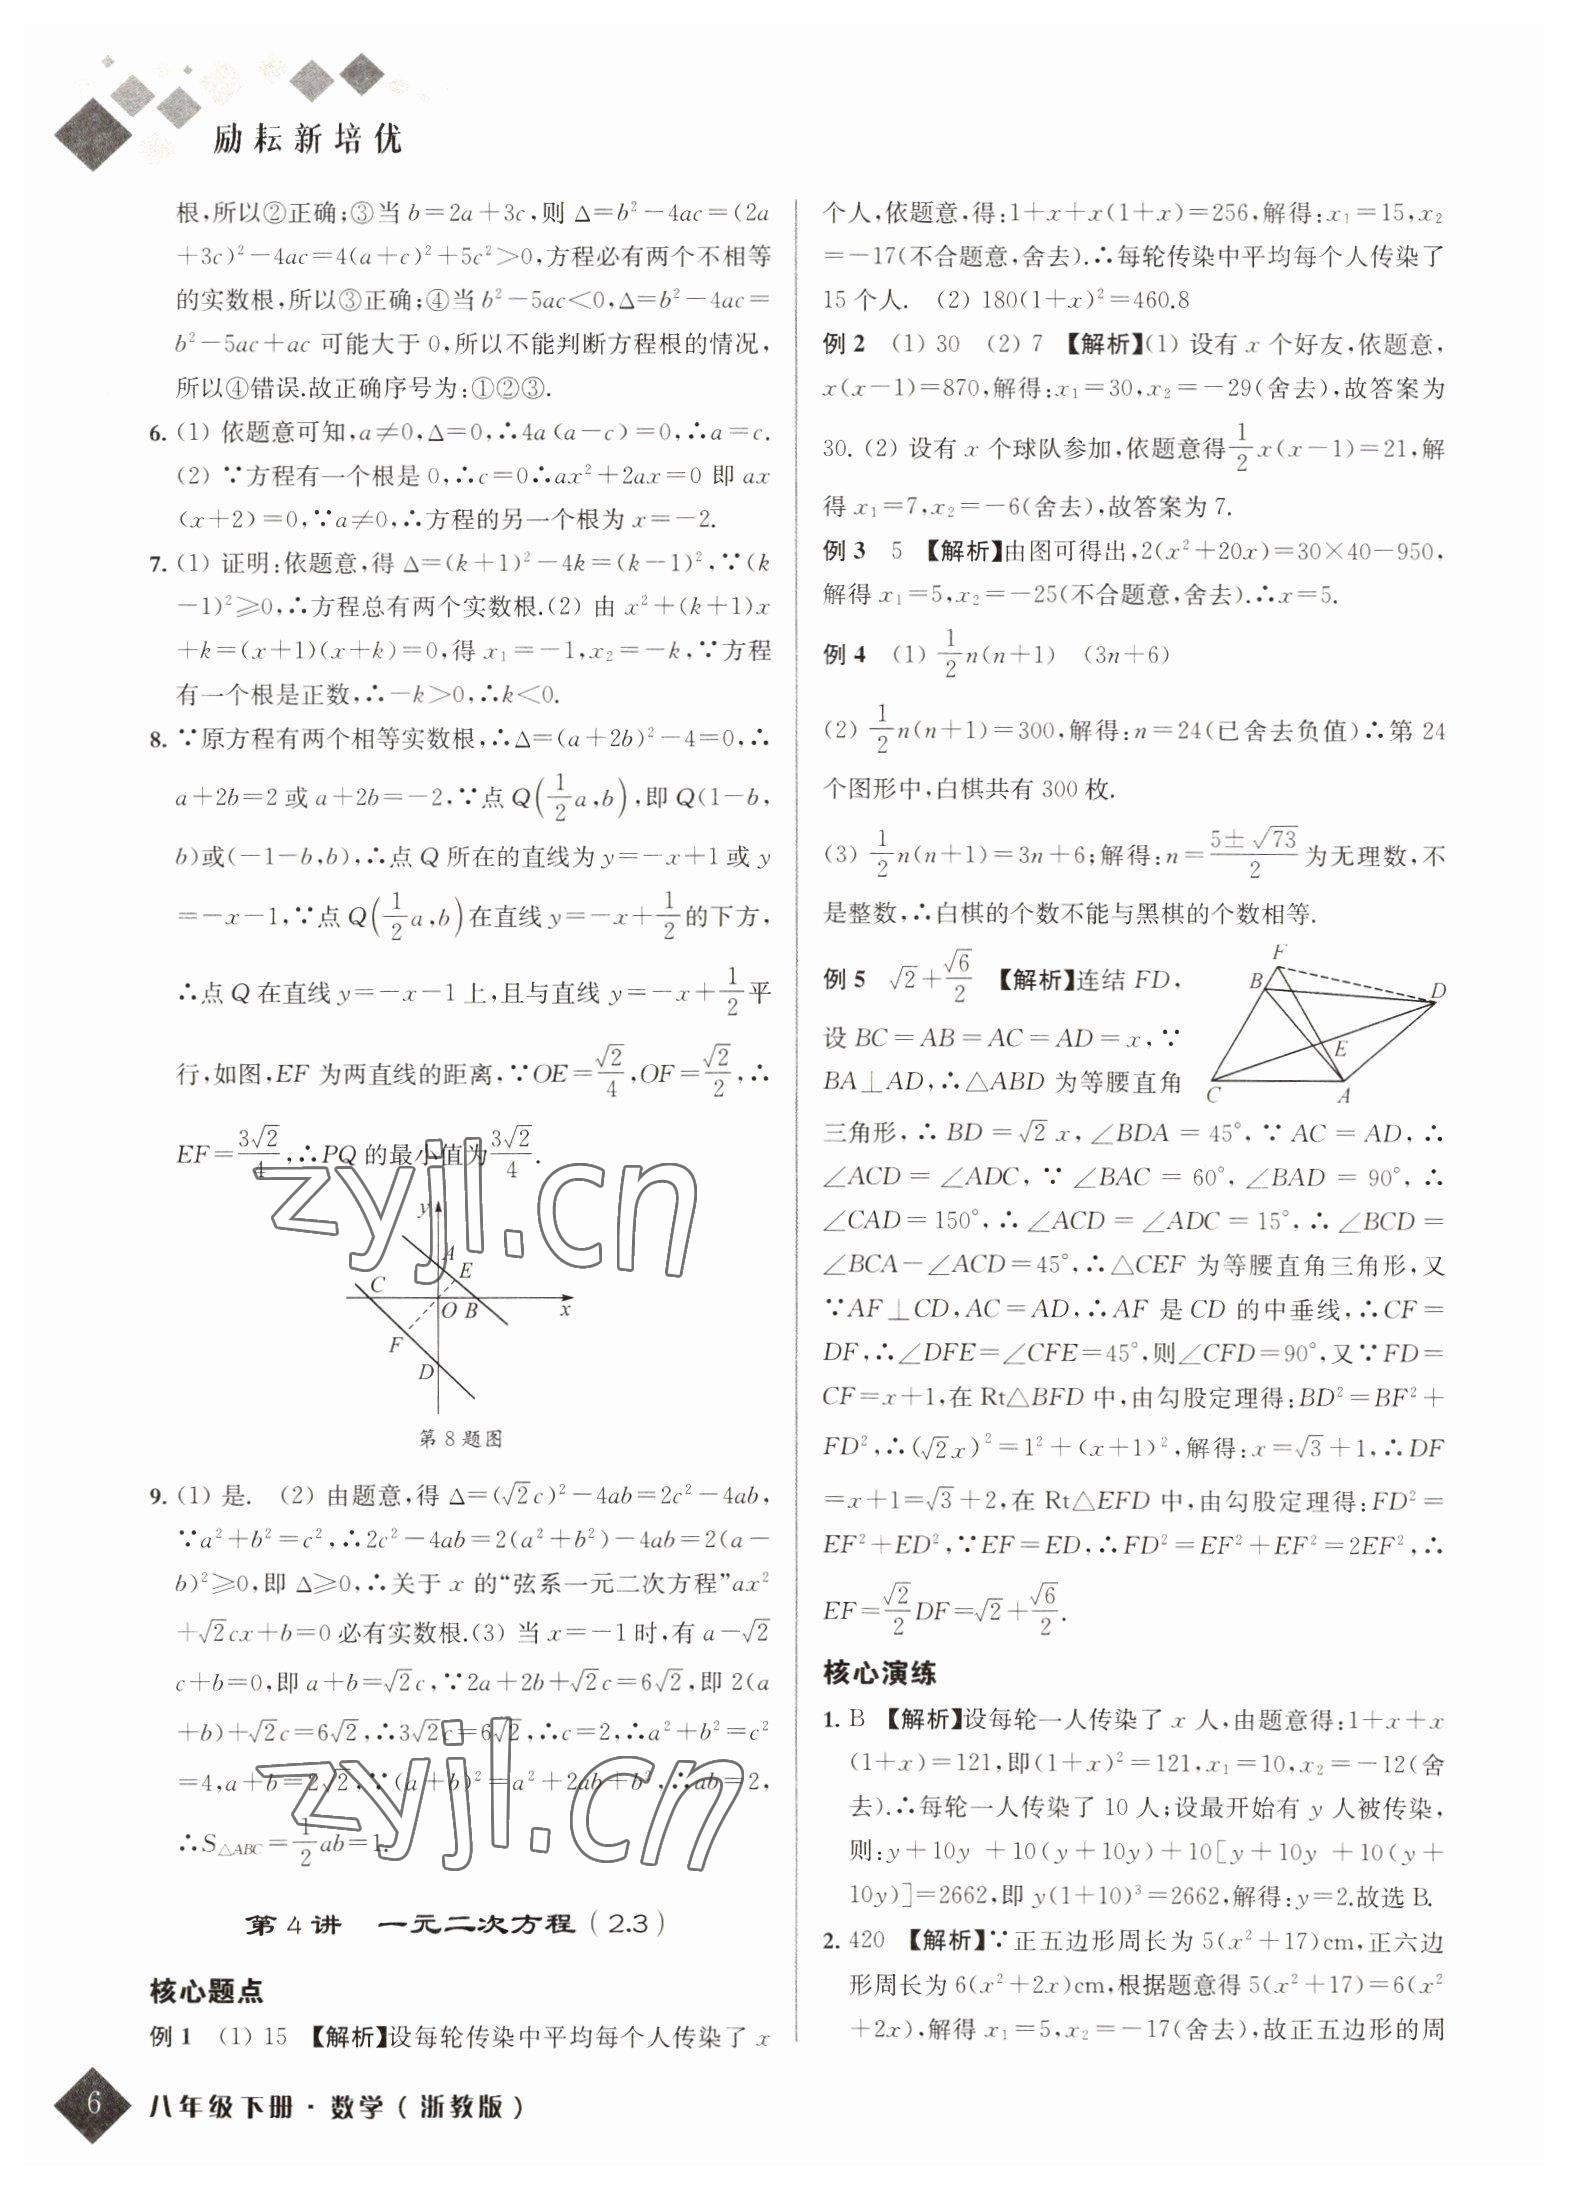 励耘新培优
根,所以②正确;③当 b=2a+3c,则 Δ=b²-4ac=(2a
+3c)²-4ac=4(a+c)²+5c²>0,方程必有两个不相等
的实数根,所以③正确;④当 b²-5ac<0,Δ=b²-4ac=
b²-5ac+ac 可能大于 0,所以不能判断方程根的情况,
所以④错误.故正确序号为:①②③.
6. (1) 依题意可知,a≠0,Δ=0,∴4a(a-c)=0,∴a=c.
(2) ∵方程有一个根是 0,∴c=0∴ax²+2ax=0 即 ax
(x+2)=0,∵a≠0,∴方程的另一个根为 x=-2.
7. (1) 证明:依题意,得 Δ=(k+1)²-4k=(k-1)²,∵(k
-1)²≥0,∴方程总有两个实数根.(2) 由 x²+(k+1)x
+k=(x+1)(x+k)=0,得 x₁=-1,x₂=-k,∵方程
有一个根是正数,∴-k>0,∴k<0.
8. ∵原方程有两个相等实数根,∴Δ=(a+2b)²-4=0,∴
a+2b=2 或 a+2b=-2,∵点 Q(1/2 a,b),即 Q(1-b,
b)或(-1-b,b),∴点 Q 所在的直线为 y=-x+1 或 y
=-x-1,∵点 Q(1/2 a,b)在直线 y=-x+1/2 的下方,
∴点 Q 在直线 y=-x-1 上,且与直线 y=-x+1/2 平
行,如图,EF 为两直线的距离,∵OE=√2/4,OF=√2/2,∴
EF=3√2/4,∴PQ 的最小值为 3√2/4.
y
A
E
C
O B x
F
D
第 8 题图
9. (1) 是. (2) 由题意,得 Δ=(√2c)²-4ab=2c²-4ab,
∵a²+b²=c²,∴2c²-4ab=2(a²+b²)-4ab=2(a-
b)²≥0,即 Δ≥0,∴关于 x 的“弦系一元二次方程”ax²
+√2cx+b=0 必有实数根.(3) 当 x=-1 时,有 a-√2
c+b=0,即 a+b=√2c,∵2a+2b+√2c=6√2,即 2(a
+b)+√2c=6√2,∴3√2c=6√2,∴c=2,∴a²+b²=c²
=4,a+b=2√2,∵(a+b)²=a²+2ab+b²,∴ab=2,
∴S△ABC=1/2 ab=1.
第 4 讲 一元二次方程(2.3)
核心题点
例 1 (1) 15 【解析】设每轮传染中平均每个人传染了 x
个人,依题意,得:1+x+x(1+x)=256,解得:x₁=15,x₂
=-17(不合题意,舍去).∴每轮传染中平均每个人传染了
15 个人. (2) 180(1+x)²=460.8
例 2 (1) 30 (2) 7 【解析】(1) 设有 x 个好友,依题意,
x(x-1)=870,解得:x₁=30,x₂=-29(舍去),故答案为
30. (2) 设有 x 个球队参加,依题意得 1/2 x(x-1)=21,解
得 x₁=7,x₂=-6(舍去),故答案为 7.
例 3 5 【解析】由图可得出,2(x²+20x)=30×40-950,
解得 x₁=5,x₂=-25(不合题意,舍去).∴x=5.
例 4 (1) 1/2 n(n+1) (3n+6)
(2) 1/2 n(n+1)=300,解得:n=24(已舍去负值)∴第 24
个图形中,白棋共有 300 枚.
(3) 1/2 n(n+1)=3n+6;解得:n=(5±√73)/2 为无理数,不
是整数,∴白棋的个数不能与黑棋的个数相等.
例 5 √2+√6/2 【解析】连结 FD,
设 BC=AB=AC=AD=x,∵
BA⊥AD,∴△ABD 为等腰直角
F
B
D
E
C
A
三角形,∴BD=√2x,∠BDA=45°,∵AC=AD,∴
∠ACD=∠ADC,∵∠BAC=60°,∠BAD=90°,∴
∠CAD=150°,∴∠ACD=∠ADC=15°,∴∠BCD=
∠BCA-∠ACD=45°,∴△CEF 为等腰直角三角形,又
∵AF⊥CD,AC=AD,∴AF 是 CD 的中垂线,∴CF=
DF,∴∠DFE=∠CFE=45°,则∠CFD=90°,又∵FD=
CF=x+1,在 Rt△BFD 中,由勾股定理得:BD²=BF²+
FD²,∴(√2x)²=1²+(x+1)²,解得:x=√3+1,∴DF
=x+1=√3+2,在 Rt△EFD 中,由勾股定理得:FD²=
EF²+ED²,∵EF=ED,∴FD²=EF²+EF²=2EF²,∴
EF=√2/2 DF=√2+√6/2.
核心演练
1. B 【解析】设每轮一人传染了 x 人,由题意得:1+x+x
(1+x)=121,即(1+x)²=121,x₁=10,x₂=-12(舍
去).∴每轮一人传染了 10 人;设最开始有 y 人被传染,
则:y+10y +10(y+10y)+10[y+10y +10(y+
10y)]=2662,即 y(1+10)³=2662,解得:y=2.故选 B.
2. 420 【解析】∵正五边形周长为 5(x²+17)cm,正六边
形周长为 6(x²+2x)cm,根据题意得 5(x²+17)=6(x²
+2x),解得 x₁=5,x₂=-17(舍去),故正五边形的周
6 八年级下册·数学(浙教版)
zyjl.cn
zyjl.cn